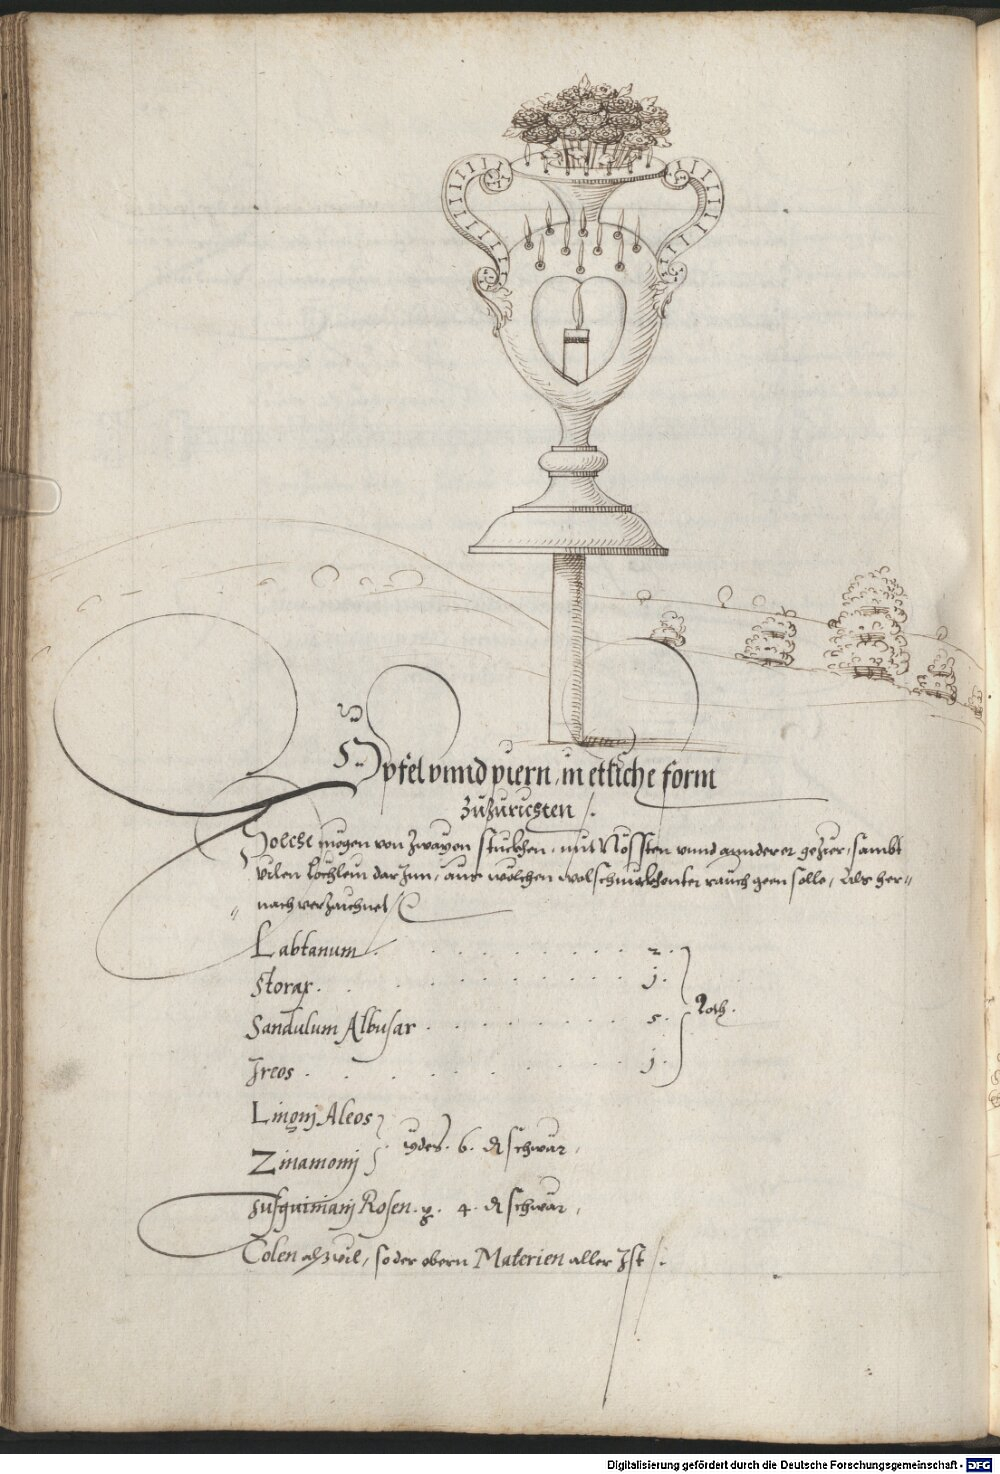 Öpfel vnnd piern, in etliche form
zuzurichsten /.
Solche mögen von zwayen stuckhen, mit Rossten vnnd annderer gezier, sambt
vilen löchlein darzun, aus wölchen wolschmeckhenter rauch geen solle, Als her„
„ nach verzaichnet /
Labtanum . . . . . . 2 .
Storax . . . . . . j .
Sandulum Albusar . . . . . . 5 .
Loth .
Ireos . . . . . . j .
Lingnj Aleos
Zinamomj
ydes . 6 . d schwär,
Rosen . g . 4 . d schwär,
Colen alßvil, so der obern Materien aller Ist /.
Digitalisierung gefördert durch die Deutsche Forschungsgemeinschaft - DFG